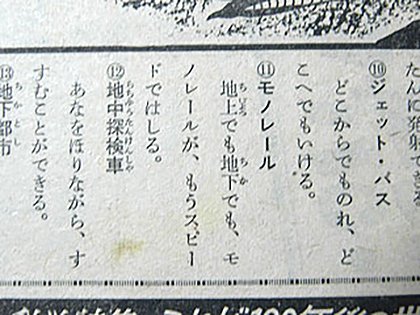 ⑩ジェット・バス
どこからでものれ、ど
こへでもいける。
⑪モノレール
地上でも地下でも、モ
ノレールが、もうスピー
ドではしる。
⑫地中探検車
あなをほりながら、す
すむことができる。
⑬地下都市